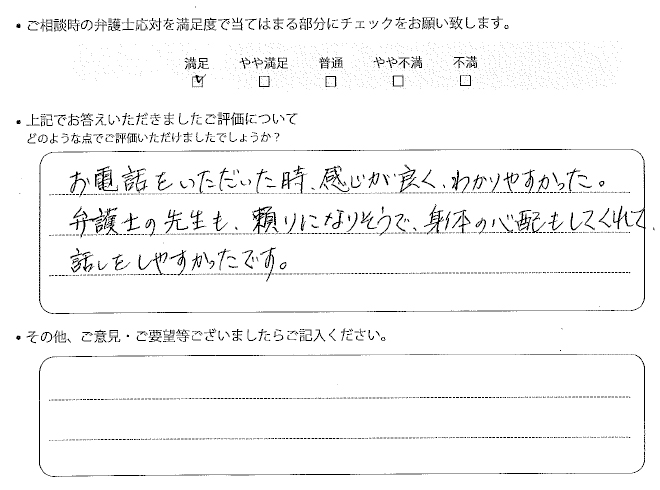 ・ご相談時の弁護士応対を満足度で当てはまる部分にチェックをお願い致します。
満足 やや満足 普通 やや不満 不満
☑ □ □ □ □
・上記でお答えいただきましたご評価について
どのような点でご評価いただけましたでしょうか？
お電話をいただいた時、感じが良く、わかりやすかった。
弁護士の先生も、頼りになりそうで、身体の心配もしてくれて、
話しをしやすかったです。
・その他、ご意見・ご要望等ございましたらご記入ください。